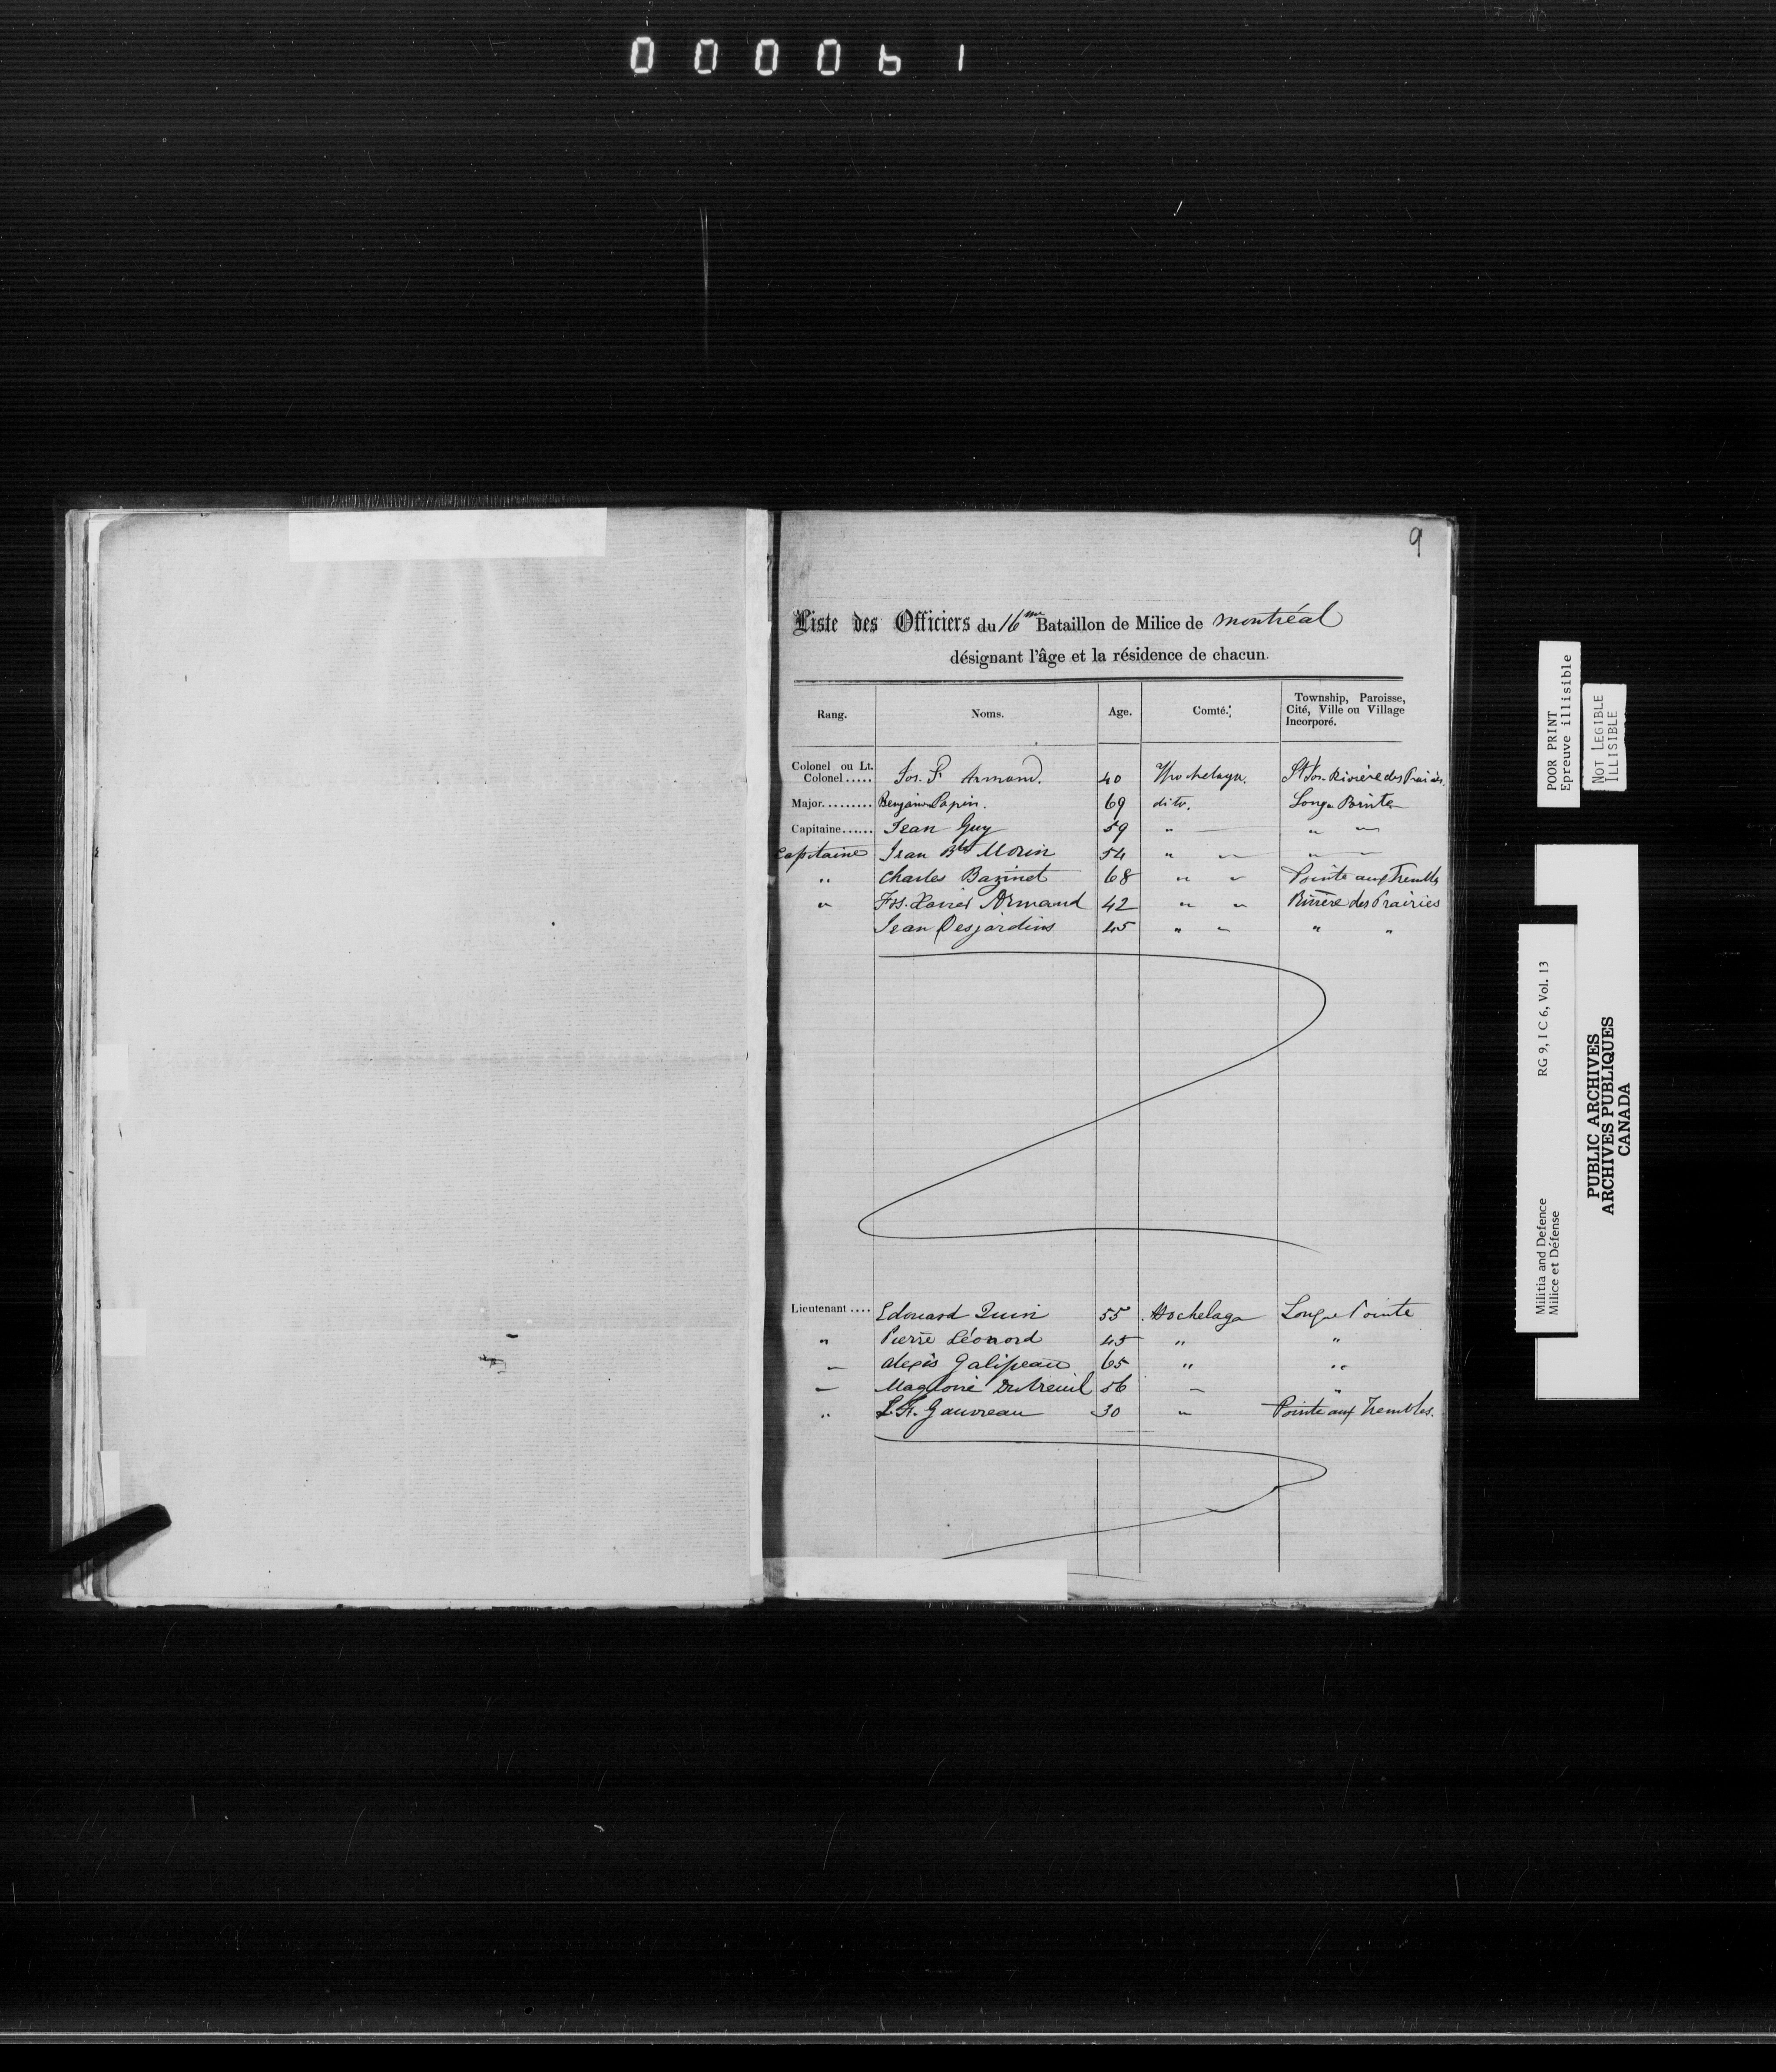 000061
9
Liste des Officiers du 16me Bataillon de Milice de Montréal
désignant l'âge et la résidence de chacun.
Rang. Noms. Age. Comté. Township, Paroisse, Cité, Ville ou Village Incorporé.
Colonel ou Lt. Colonel..... Jos. F. Armand. 40 Hochelaga. St Jos. Rivière des Prairies.
Major......... Benjamin Papin. 69 dito. Longue Pointe
Capitaine...... Jean Guy 59 " " "
Capitaine Jean Bte Morin 54 " " "
" Charles Bazinet 68 " " Pointe aux Trembles
" Frs. Xavier Armand 42 " " Rivière des Prairies
Jean Desjardins 45 " " " "
Lieutenant.... Edouard Quin 55 Hochelaga Longue Pointe
" Pierre Léonard 45 " "
" Alexis Galipeau 65 " "
" Magloire Dutreuil 56 " "
" L. F. Gauvreau 30 " Pointe aux Trembles.
POOR PRINT
Epreuve illisible
NOT LEGIBLE
ILLISIBLE
Militia and Defence RG 9, I C 6, Vol. 13
Milice et Défense
PUBLIC ARCHIVES
ARCHIVES PUBLIQUES
CANADA